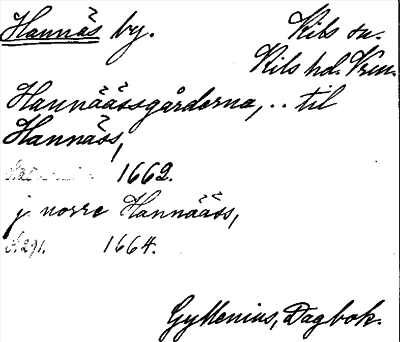 Hannäs by. Kils sn.
Kils hd. Vrm.
Hannäässgårderna, .. til
Hannäss,
1662.
j norre Hannääss,
S. 291. 1664.
Gyllenius, Dagbok.